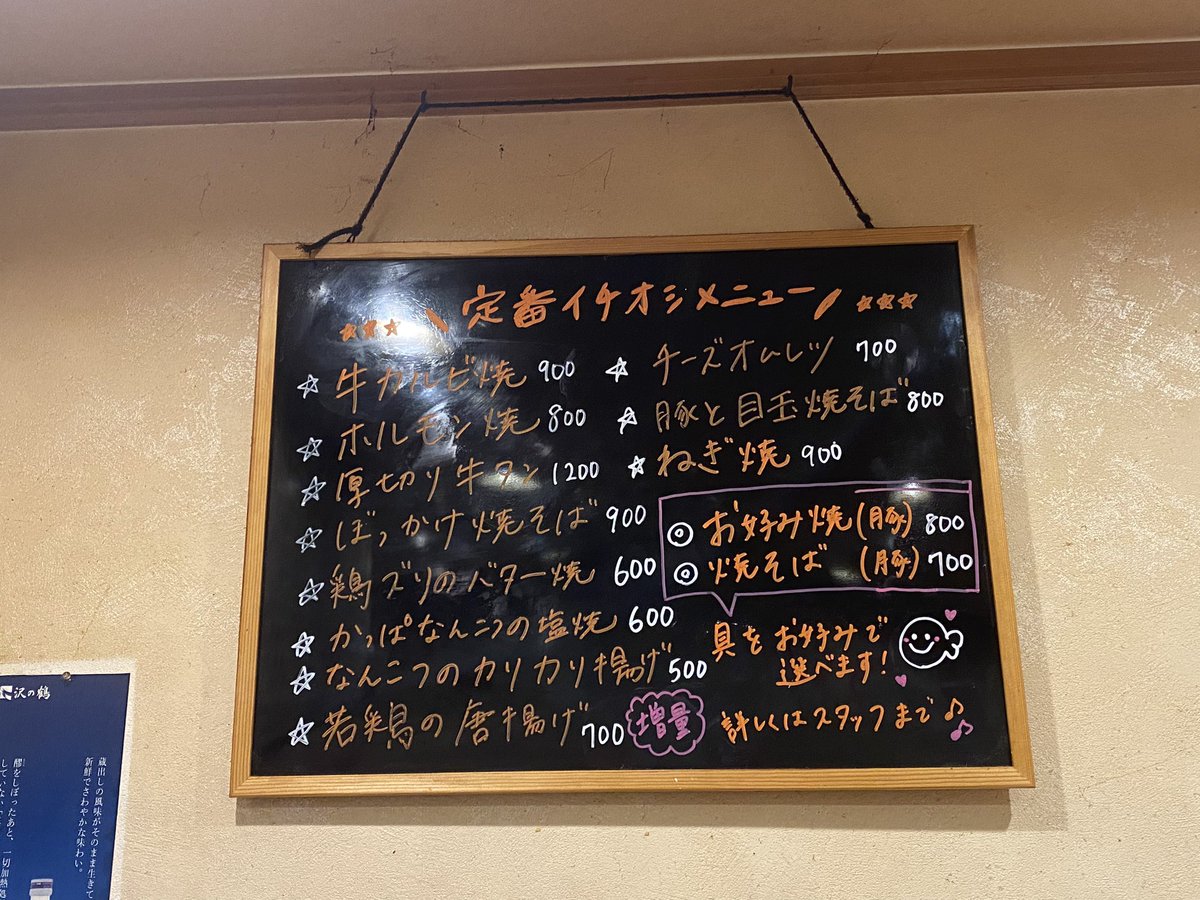 定番イチオシメニュー
☆ 牛カルビ焼 900
☆ ホルモン焼 800
☆ 厚切り牛タン 1200
☆ ぼっかけ焼そば 900
☆ 鶏ズリのバター焼 600
☆ かっぱなんこつの塩焼 600
☆ なんこつのカリカリ揚げ 500
☆ 若鶏の唐揚げ 700 増量
☆ チーズオムレツ 700
☆ 豚と目玉焼そば 800
☆ ねぎ焼 900
◎ お好み焼(豚) 800
◎ 焼そば (豚) 700
具をお好みで
選べます!
詳しくはスタッフまで♪
沢の鶴
蔵出しの風味がそのまま生きて
新鮮でさわやかな味わい。
醪をしぼったあと、一切加熱処
していない